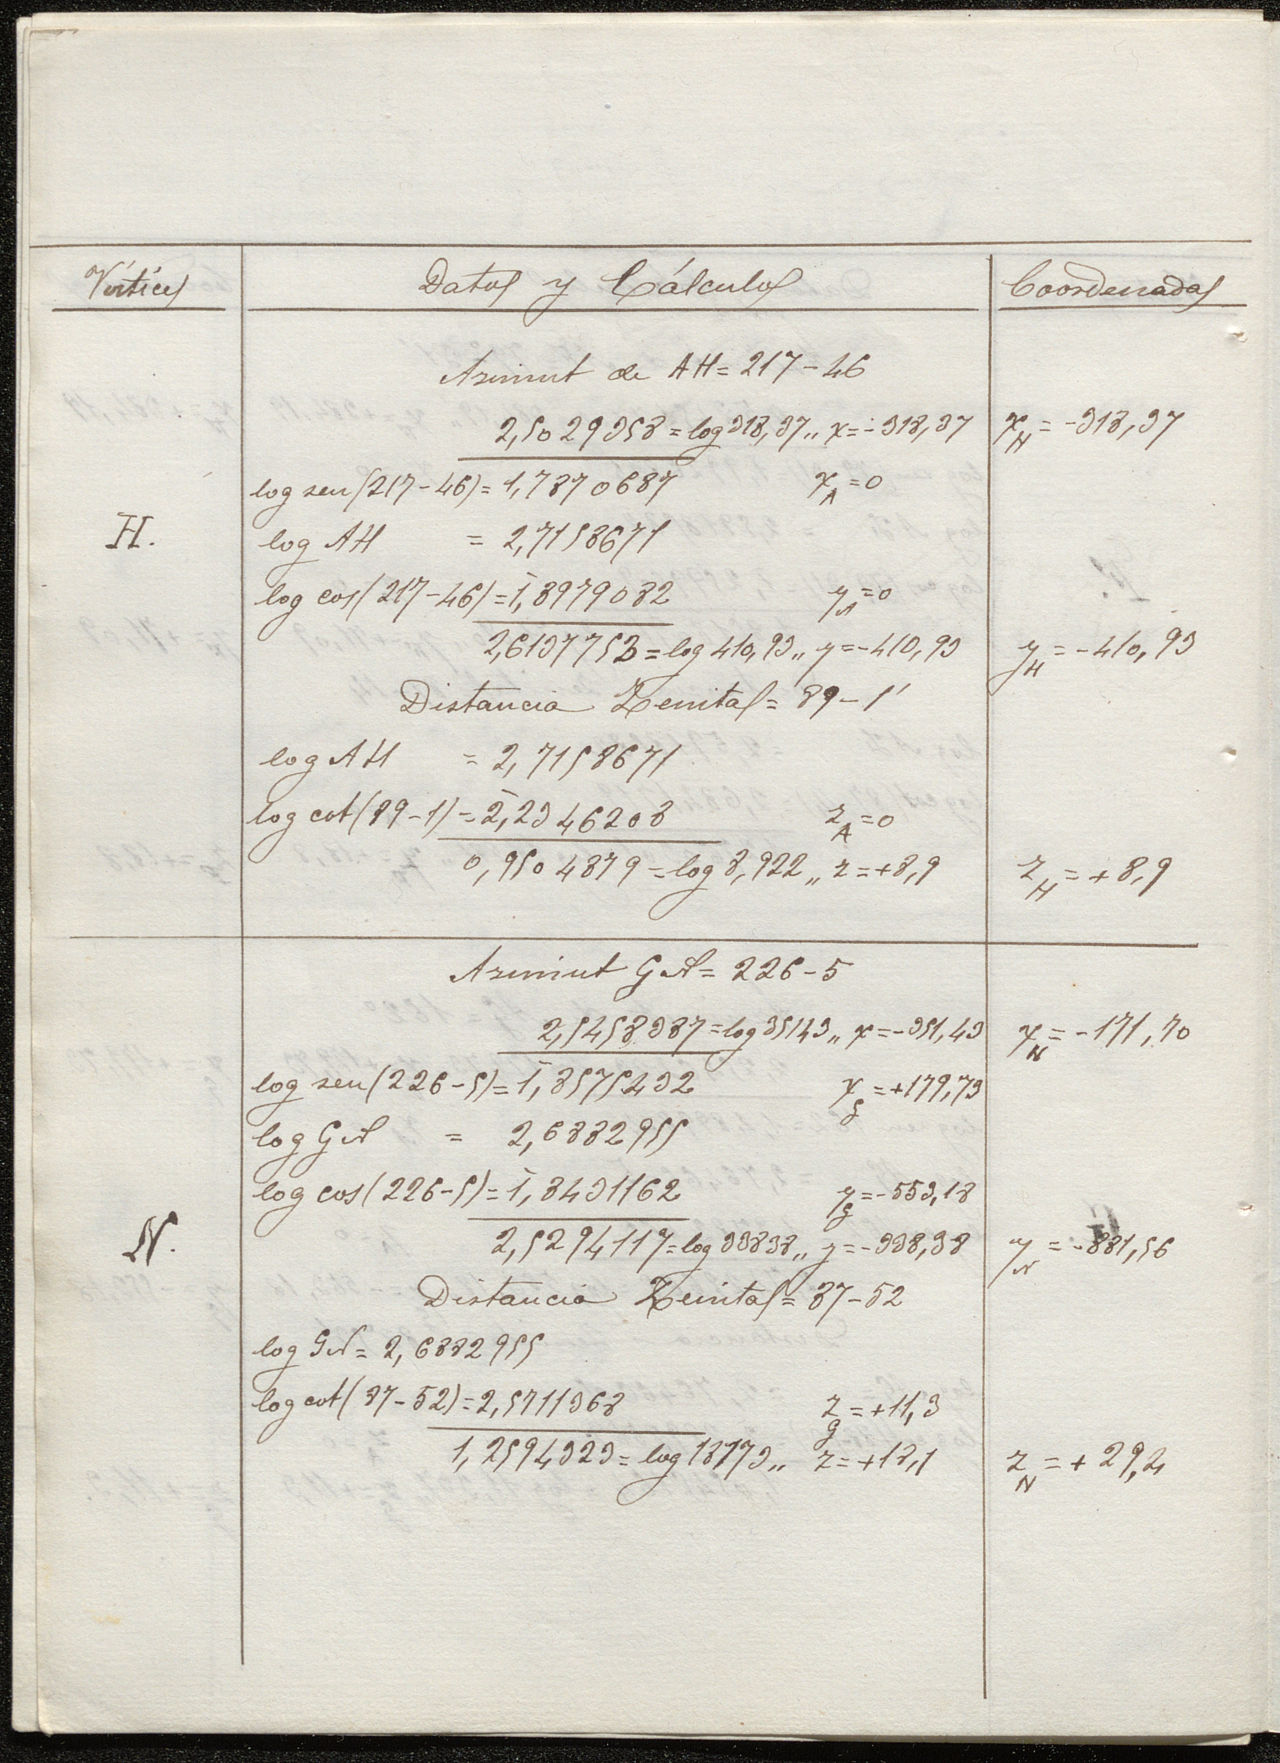 Vértices Datos y Cálculos Coordenadas
Azimut de AH = 217 - 46
2,5029358 = log 318,37 „ x = -318,37 x_H = -318,37
log sen (217 - 46) = 1̄,7870687 x_A = 0
H.
log AH = 2,7158671
log cos (217 - 46) = 1̄,8979082 y_A = 0
2,6137753 = log 410,93 „ y = -410,93 y_H = -410,93
Distancia Zenital = 89 - 1'
log AH = 2,7158671
log cot (89 - 1) = 2̄,2346208 z_A = 0
0,9504879 = log 8,922 „ z = +8,9 z_H = +8,9
Azimut GN = 226 - 5
2,5458387 = log 35143 „ x = -351,43 x_N = -171,70
log sen (226 - 5) = 1̄,8575432 x_g = +179,73
log GN = 2,6882955
log cos (226 - 5) = 1̄,8431162 y_g = -553,18
N.
2,5294117 = log 33838 „ y = -338,38 y_N = -881,56
Distancia Zenital = 87 - 52
log GN = 2,6882955
log cot (87 - 52) = 2,5711368 z_g = +11,3
1,2594323 = log 18173 „ z = +18,1 z_N = +29,4